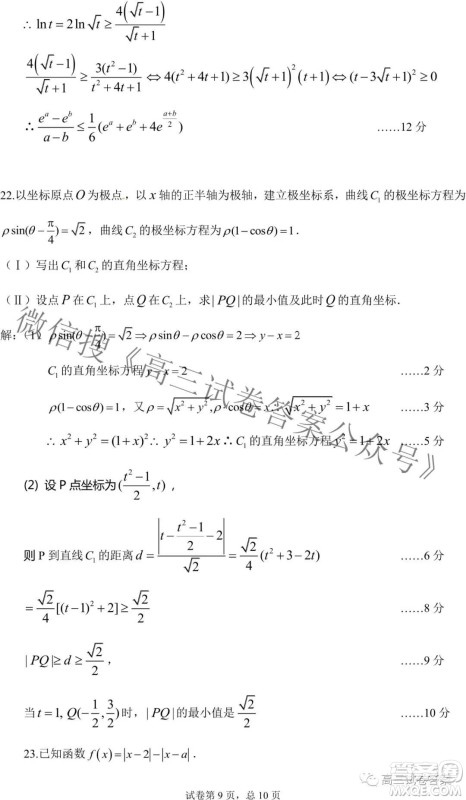 ∴ ln t = 2 ln √t ≥ 4(√t −1)/(√t +1)
4(√t −1)/(√t +1) ≥ 3(t² −1)/(t² +4t +1) ⇔ 4(t² +4t +1) ≥ 3(√t +1)²(t +1) ⇔ (t −3√t +1)² ≥ 0
∴ (eᵃ − eᵇ)/(a − b) ≤ 1/6(eᵃ + eᵇ + 4e^((a+b)/2)) ……12 分
22.以坐标原点 O 为极点，以 x 轴的正半轴为极轴，建立极坐标系，曲线 C₁ 的极坐标方程为
ρ sin(θ − π/4) = √2，曲线 C₂ 的极坐标方程为 ρ(1−cosθ) = 1．
(Ⅰ) 写出 C₁ 和 C₂ 的直角坐标方程；
(Ⅱ) 设点 P 在 C₁ 上，点 Q 在 C₂ 上，求 |PQ| 的最小值及此时 Q 的直角坐标．
解：(1) ρ sin(θ − π/4) = √2 ⇒ ρ sinθ − ρ cosθ = 2 ⇒ y − x = 2
C₁ 的直角坐标方程 y − x = 2 ……2 分
ρ(1−cosθ) = 1，又 ρ = √(x² + y²), ρ cosθ = x ∴ √(x² + y²) = 1 + x ……3 分
∴ x² + y² = (1+x)² ∴ y² = 1+2x ∴ C₁ 的直角坐标方程 y² = 1+2x ……5 分
(2) 设 P 点坐标为 ((t² −1)/2, t)，
则 P 到直线 C₁ 的距离 d = |t − (t² −1)/2 − 2|/√2 = √2/4 (t² + 3 − 2t) ……6 分
= √2/4 [(t −1)² + 2] ≥ √2/2 ……8 分
|PQ| ≥ d ≥ √2/2， ……9 分
当 t = 1, Q(−1/2, 3/2) 时，|PQ| 的最小值是 √2/2 ……10 分
23.已知函数 f(x) = |x−2| − |x−a|．
试卷第 9 页，总 10 页
微信搜《高三试卷答案公众号》
高三试卷答案